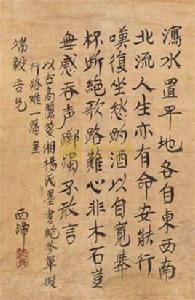 瀉水置平地各自東西南
北流人生亦有命安能行
嘆復坐愁酌酒以自寬舉
杯斷絕歌路難心非木石豈
無感吞聲躑躅不敢言
以台高麗箋湘楊氏墨書鮑參軍擬
行路難一篇呈
端毅吾兄
西諦